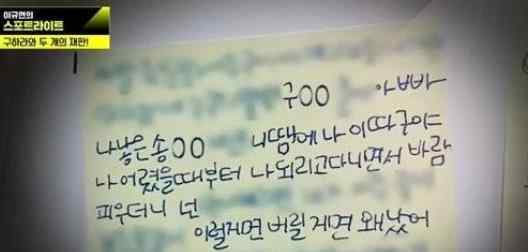 이규연의
스포트라이트
구하라와 두 개의 재판!
구OO 아빠바
나낳은송OO 니땜에나이따구야
나어렸을때부터 나데리고다니면서 바람
피우더니 넌
이럴게면 버릴게면 왜낳어